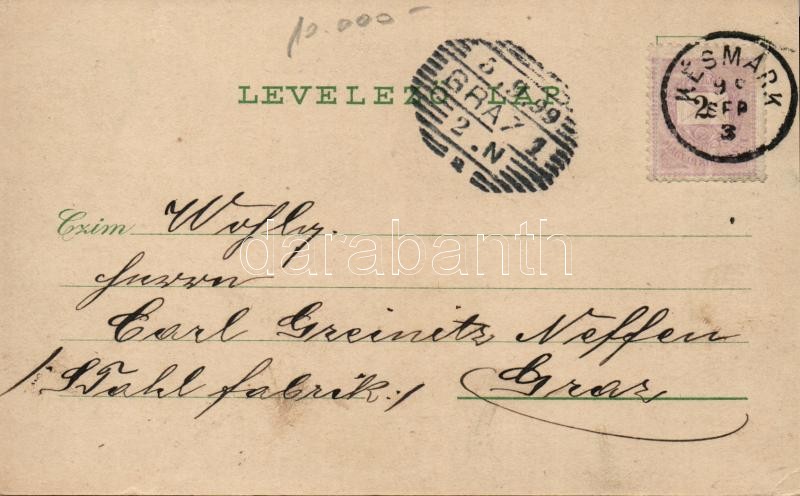 10.000-
LEVELEZŐ LAP
5.9.99
GRAZ 1
2.N
KÉSMÁRK
99
SEP
3
2
Czim Wohlg.
darabanth
Herrn
Carl Greinitz Neffen
/: Stahlfabrik :/ Graz